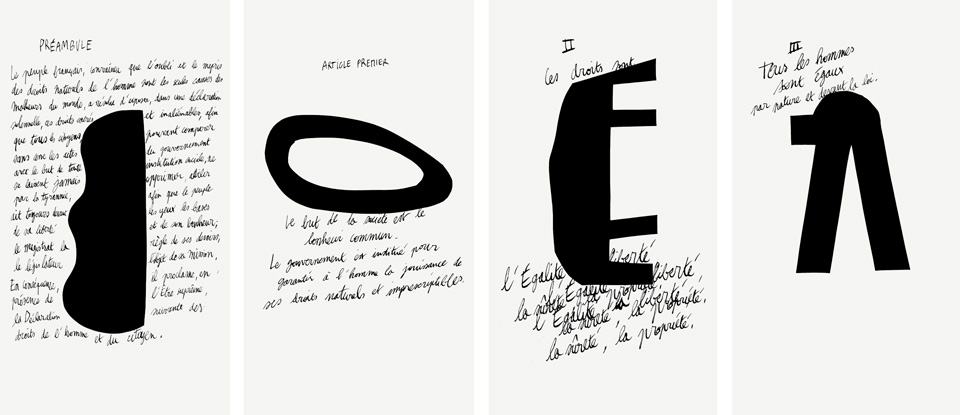 PRÉAMBULE
Le peuple français, convaincu que l'oubli et le mépris
des droits naturels de l'homme sont les seules causes des
malheurs du monde, a résolu d'exposer, dans une déclaration
solennelle, ces droits sacrés et inaliénables, afin
que tous les citoyens pouvant comparer
sans cesse les actes du gouvernement
avec le but de toute institution sociale, ne
se laissent jamais opprimer, avilir
par la tyrannie; afin que le peuple
ait toujours devant les yeux les bases
de sa liberté et de son bonheur;
le magistrat la règle de ses devoirs;
le législateur l'objet de sa mission,
En conséquence, il proclame, en
présence de l'Etre suprême,
la Déclaration suivante des
droits de l'homme et du citoyen.
ARTICLE PREMIER
Le but de la société est le
bonheur commun.
Le gouvernement est institué pour
garantir à l'homme la jouissance de
ses droits naturels et imprescriptibles.
II
Ces droits sont
l'Égalité liberté,
la sûreté, propriété liberté,
l'Égalité la liberté,
la sûreté, la propriété.
la sûreté, la propriété.
III
Tous les hommes
sont Égaux
par nature et devant la loi.